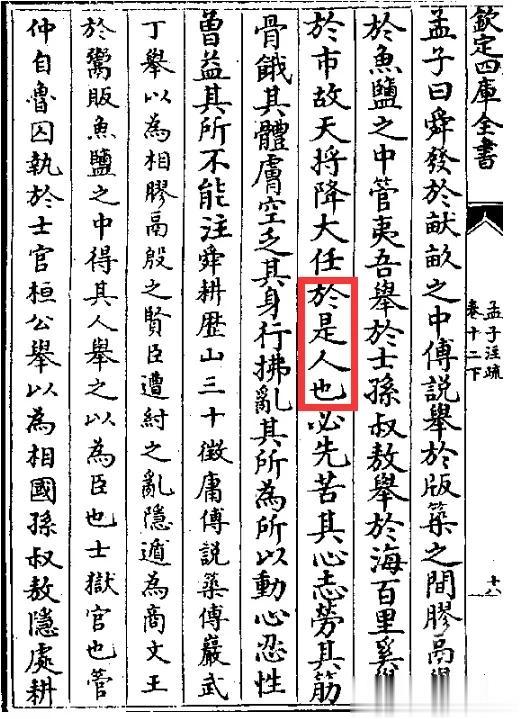 欽定四庫全書
孟子注疏
卷十二下
孟子曰舜發於畎畝之中傅說舉於版築之間膠鬲舉
於魚鹽之中管夷吾舉於士孫叔敖舉於海百里奚
於市故天將降大任於是人也必先苦其心志勞其筋
骨餓其體膚空乏其身行拂亂其所為所以動心忍性
曾益其所不能注舜耕歷山三十徵庸傅說築傅巖武
丁舉以為相膠鬲殷之賢臣遭紂之亂隱遁為商文王
於鬻販魚鹽之中得其人舉之以為臣也士獄官也管
仲自魯囚執於士官桓公舉以為相國孫叔敖隱處耕